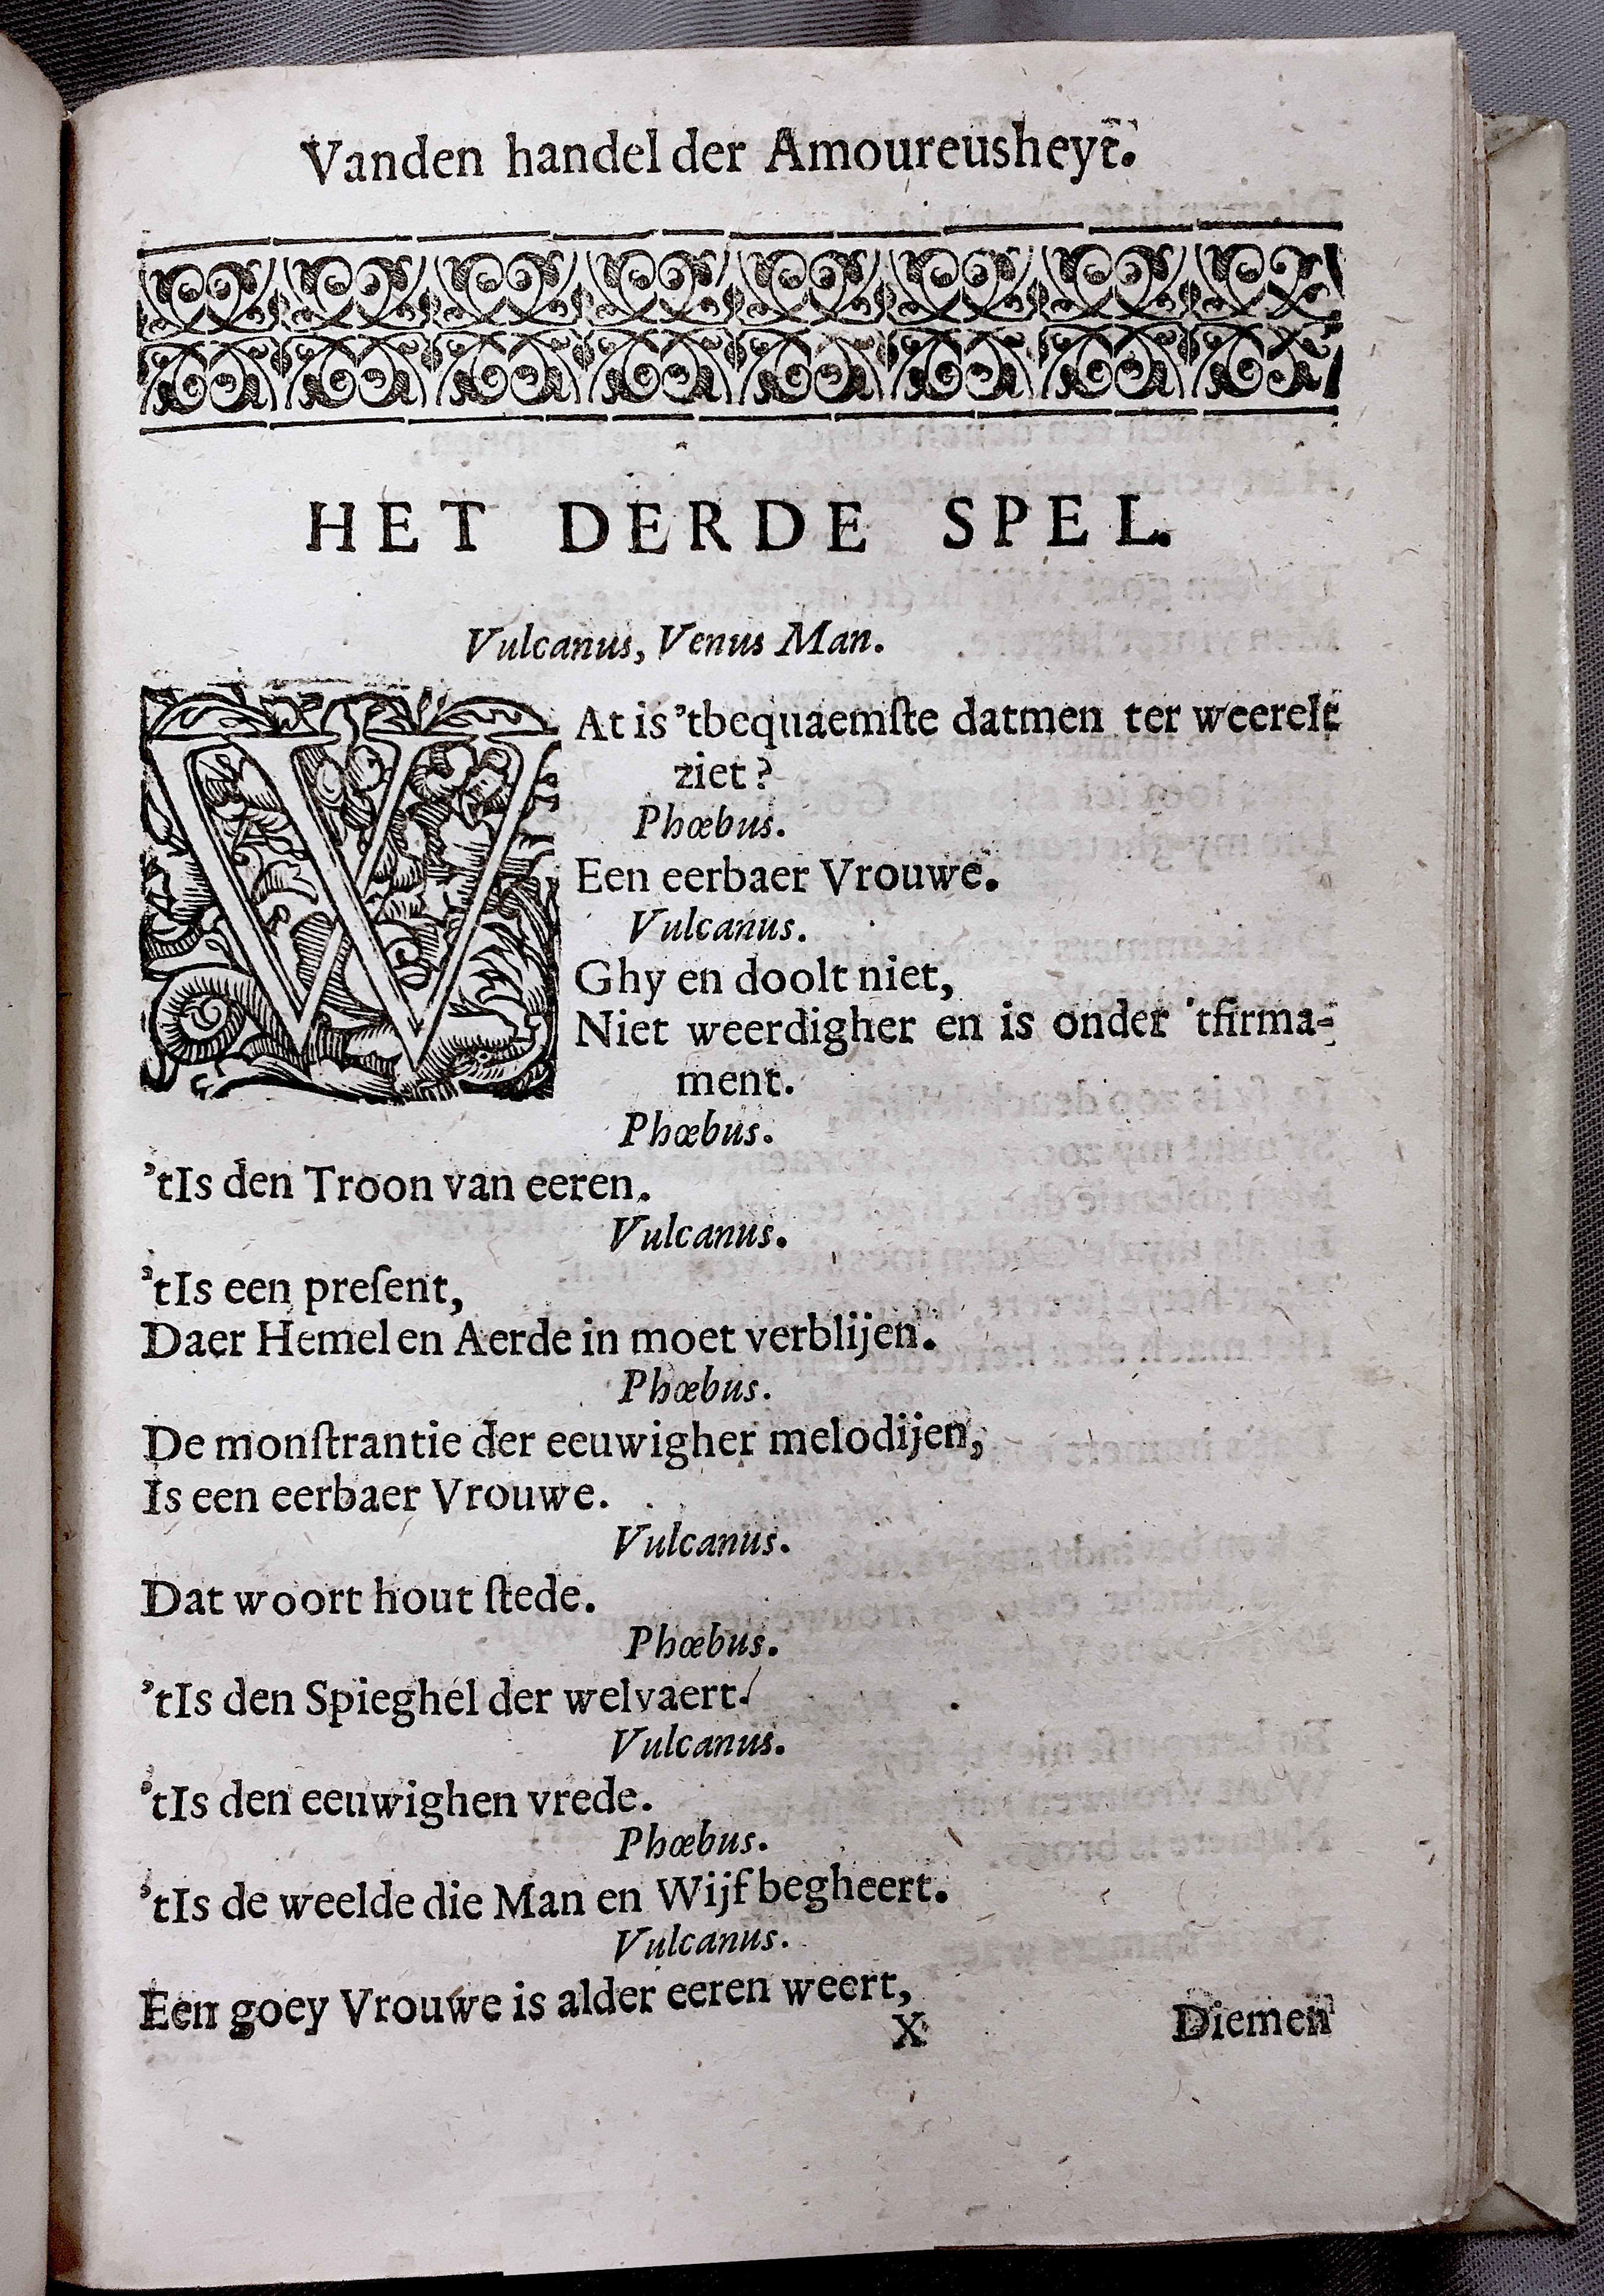 Vanden handel der Amoureusheyt.
HET DERDE SPEL.
Vulcanus, Venus Man.
WAt is 'tbequaemſte datmen ter weerelt
ziet?
Phœbus.
Een eerbaer Vrouwe.
Vulcanus.
Ghy en doolt niet,
Niet weerdigher en is onder 'tfirma-
ment.
Phœbus.
'tIs den Troon van eeren.
Vulcanus.
'tIs een preſent,
Daer Hemel en Aerde in moet verblijen.
Phœbus.
De monſtrantie der eeuwigher melodijen,
Is een eerbaer Vrouwe.
Vulcanus.
Dat woort hout ſtede.
Phœbus.
'tIs den Spieghel der welvaert.
Vulcanus.
'tIs den eeuwighen vrede.
Phœbus.
'tIs de weelde die Man en Wijf begheert.
Vulcanus.
Een goey Vrouwe is alder eeren weert,
X Diemen